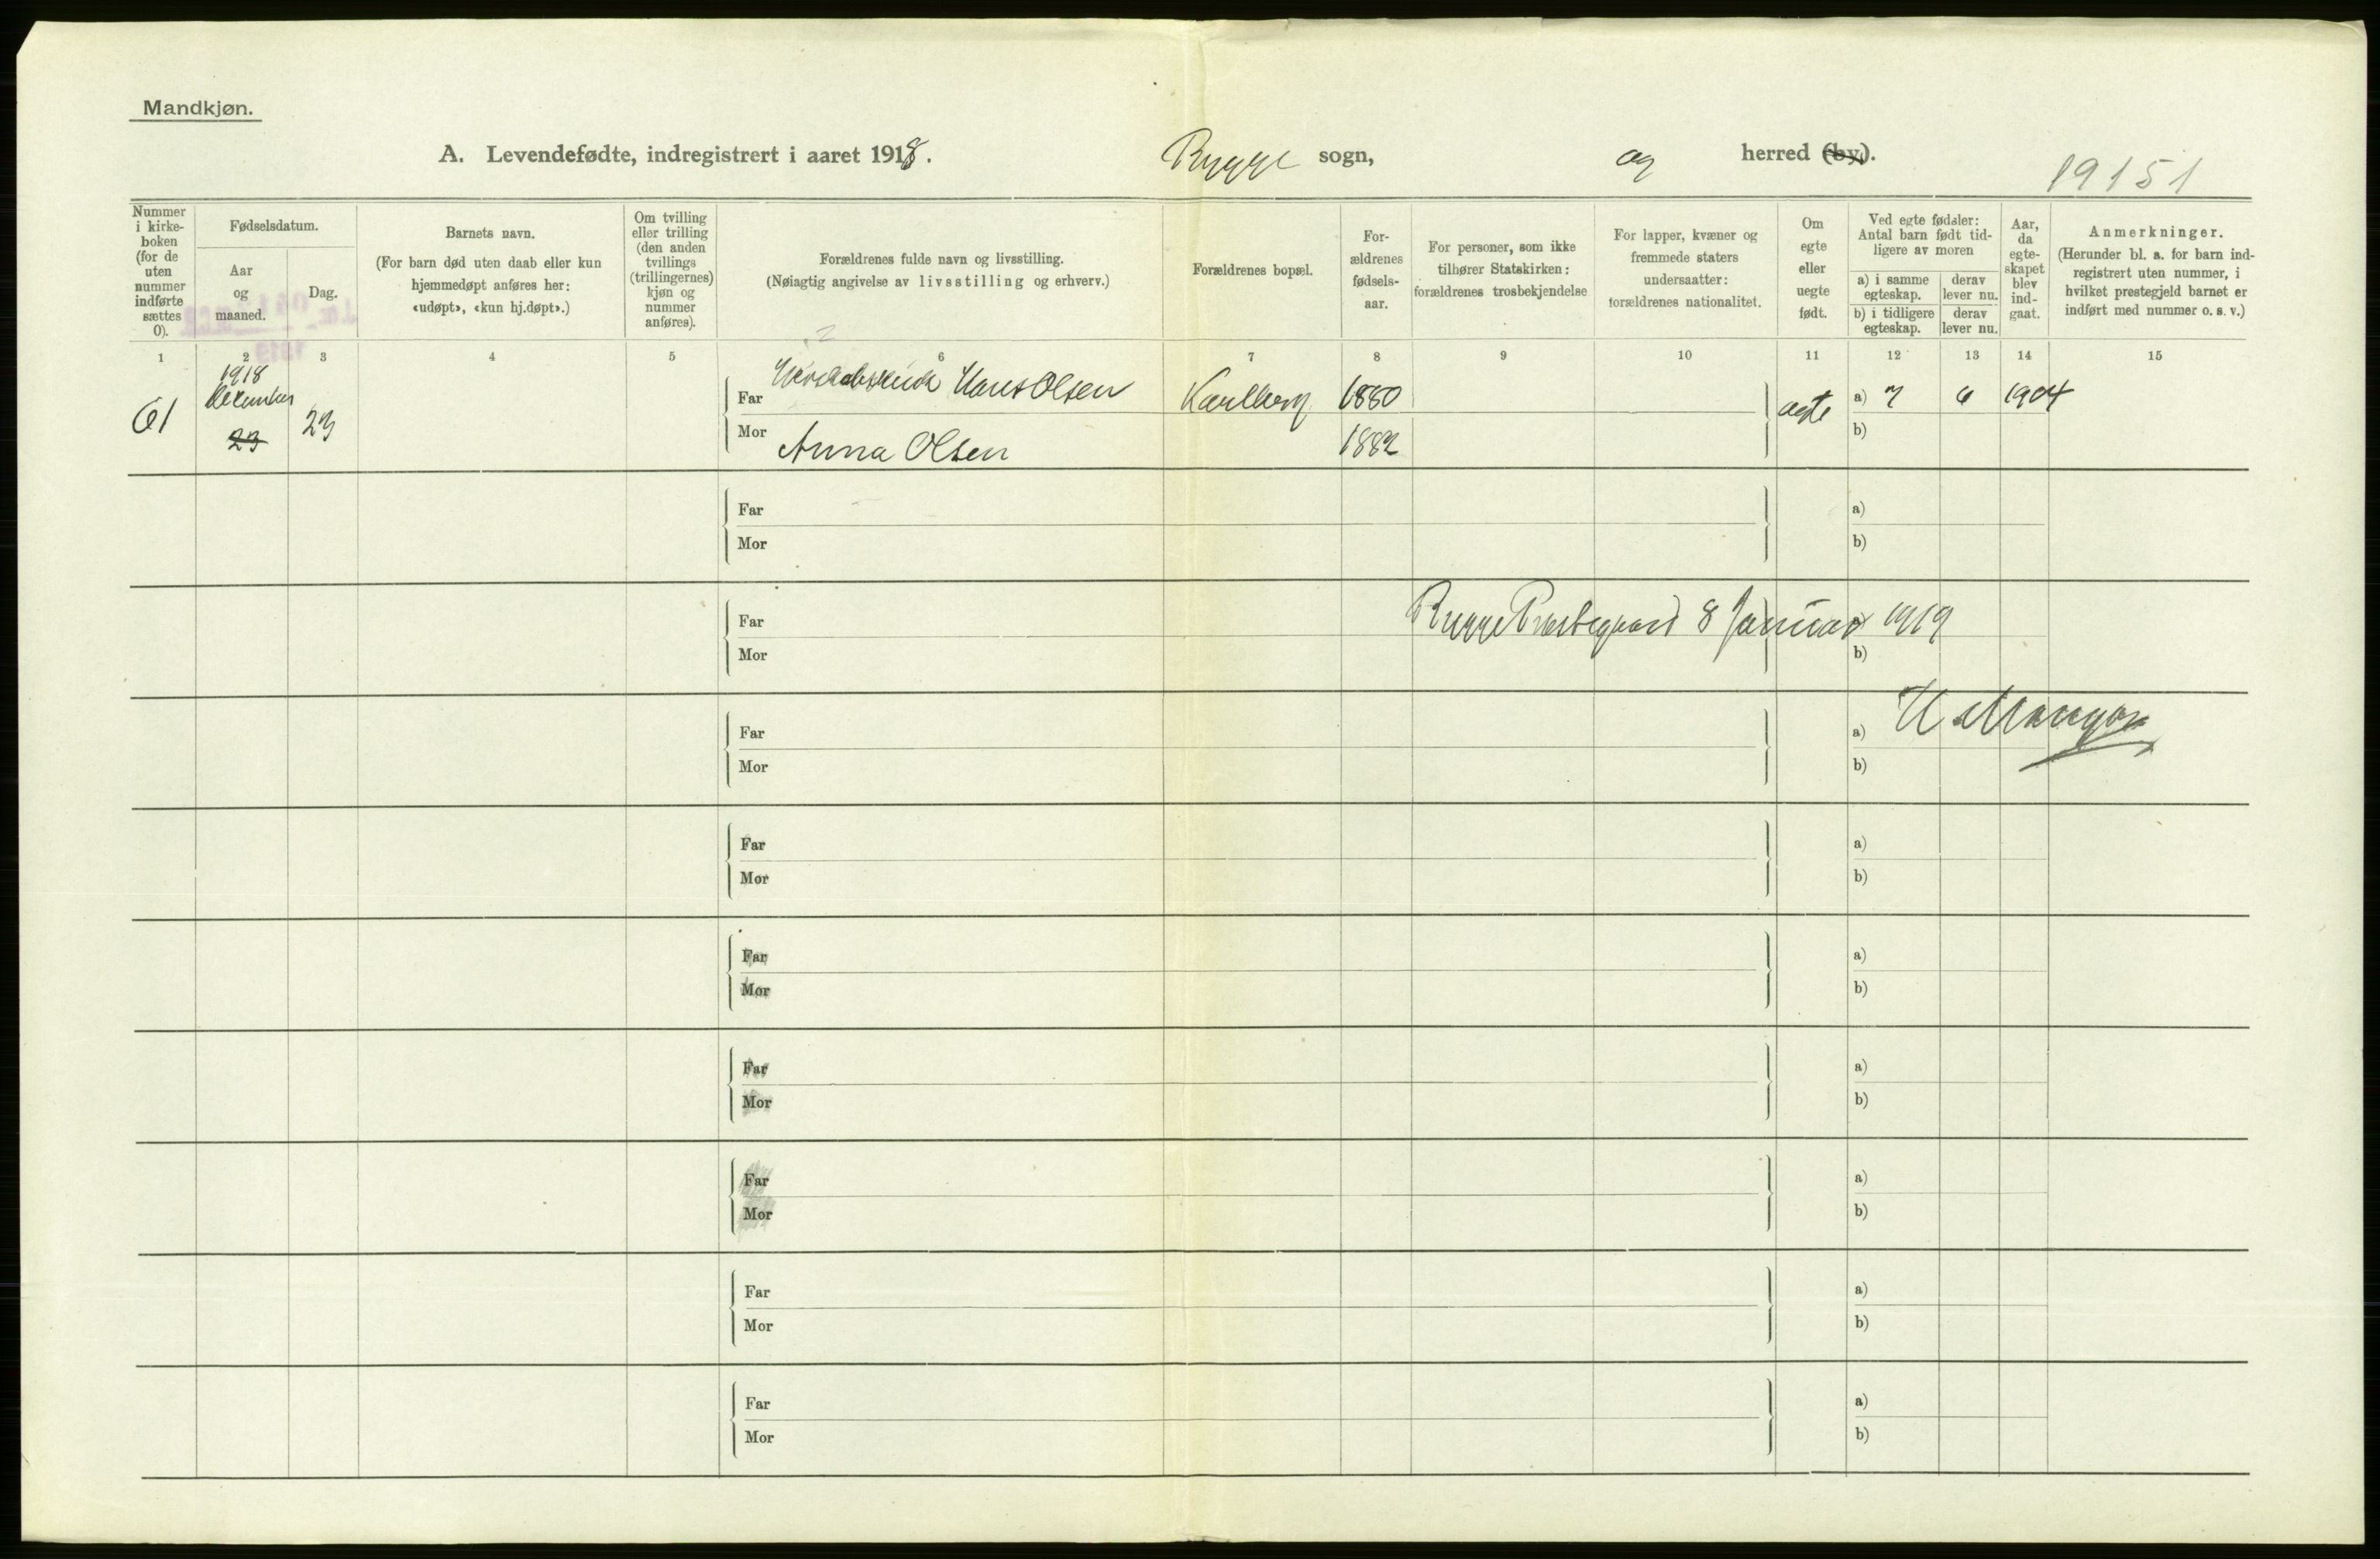 Mandkjøn.
A. Levendefødte, indregistrert i aaret 1918. Rygge sogn, og herred (by).
19151
Nummer i kirke-boken (for de uten nummer indførte sættes 0).
Fødselsdatum.
Aar og maaned.
Dag.
Barnets navn.
(For barn død uten daab eller kun hjemmedøpt anføres her: «udøpt», «kun hj.døpt».)
Om tvilling eller trilling (den anden tvillings (trillingernes) kjøn og nummer anføres).
Forældrenes fulde navn og livsstilling.
(Nøiagtig angivelse av livsstilling og erhverv.)
Forældrenes bopæl.
For-ældrenes fødsels-aar.
For personer, som ikke tilhører Statskirken: forældrenes trosbekjendelse
For lapper, kvæner og fremmede staters undersaatter: forældrenes nationalitet.
Om egte eller uegte født.
Ved egte fødsler: Antal barn født tid-ligere av moren
a) i samme egteskap.
derav lever nu.
b) i tidligere egteskap.
derav lever nu.
Aar, da egte-skapet blev ind-gaat.
Anmerkninger.
(Herunder bl. a. for barn ind-registrert uten nummer, i hvilket prestegjeld barnet er indført med nummer o. s. v.)
1 2 3 4 5 6 7 8 9 10 11 12 13 14 15
1918
61 December 23 Far Hans Olsen Karlberg 1880 ægte a) 7 6 1904
23 Mor Anna Olsen 1882 b)
Far a)
Mor b)
Far Rygge Præstegaard 8 Januar 1919
Mor b)
Far a)
Mor b)
Far a)
Mor b)
Far a)
Mor b)
Far a)
Mor b)
Far a)
Mor b)
Far a)
Mor b)
Far a)
Mor b)